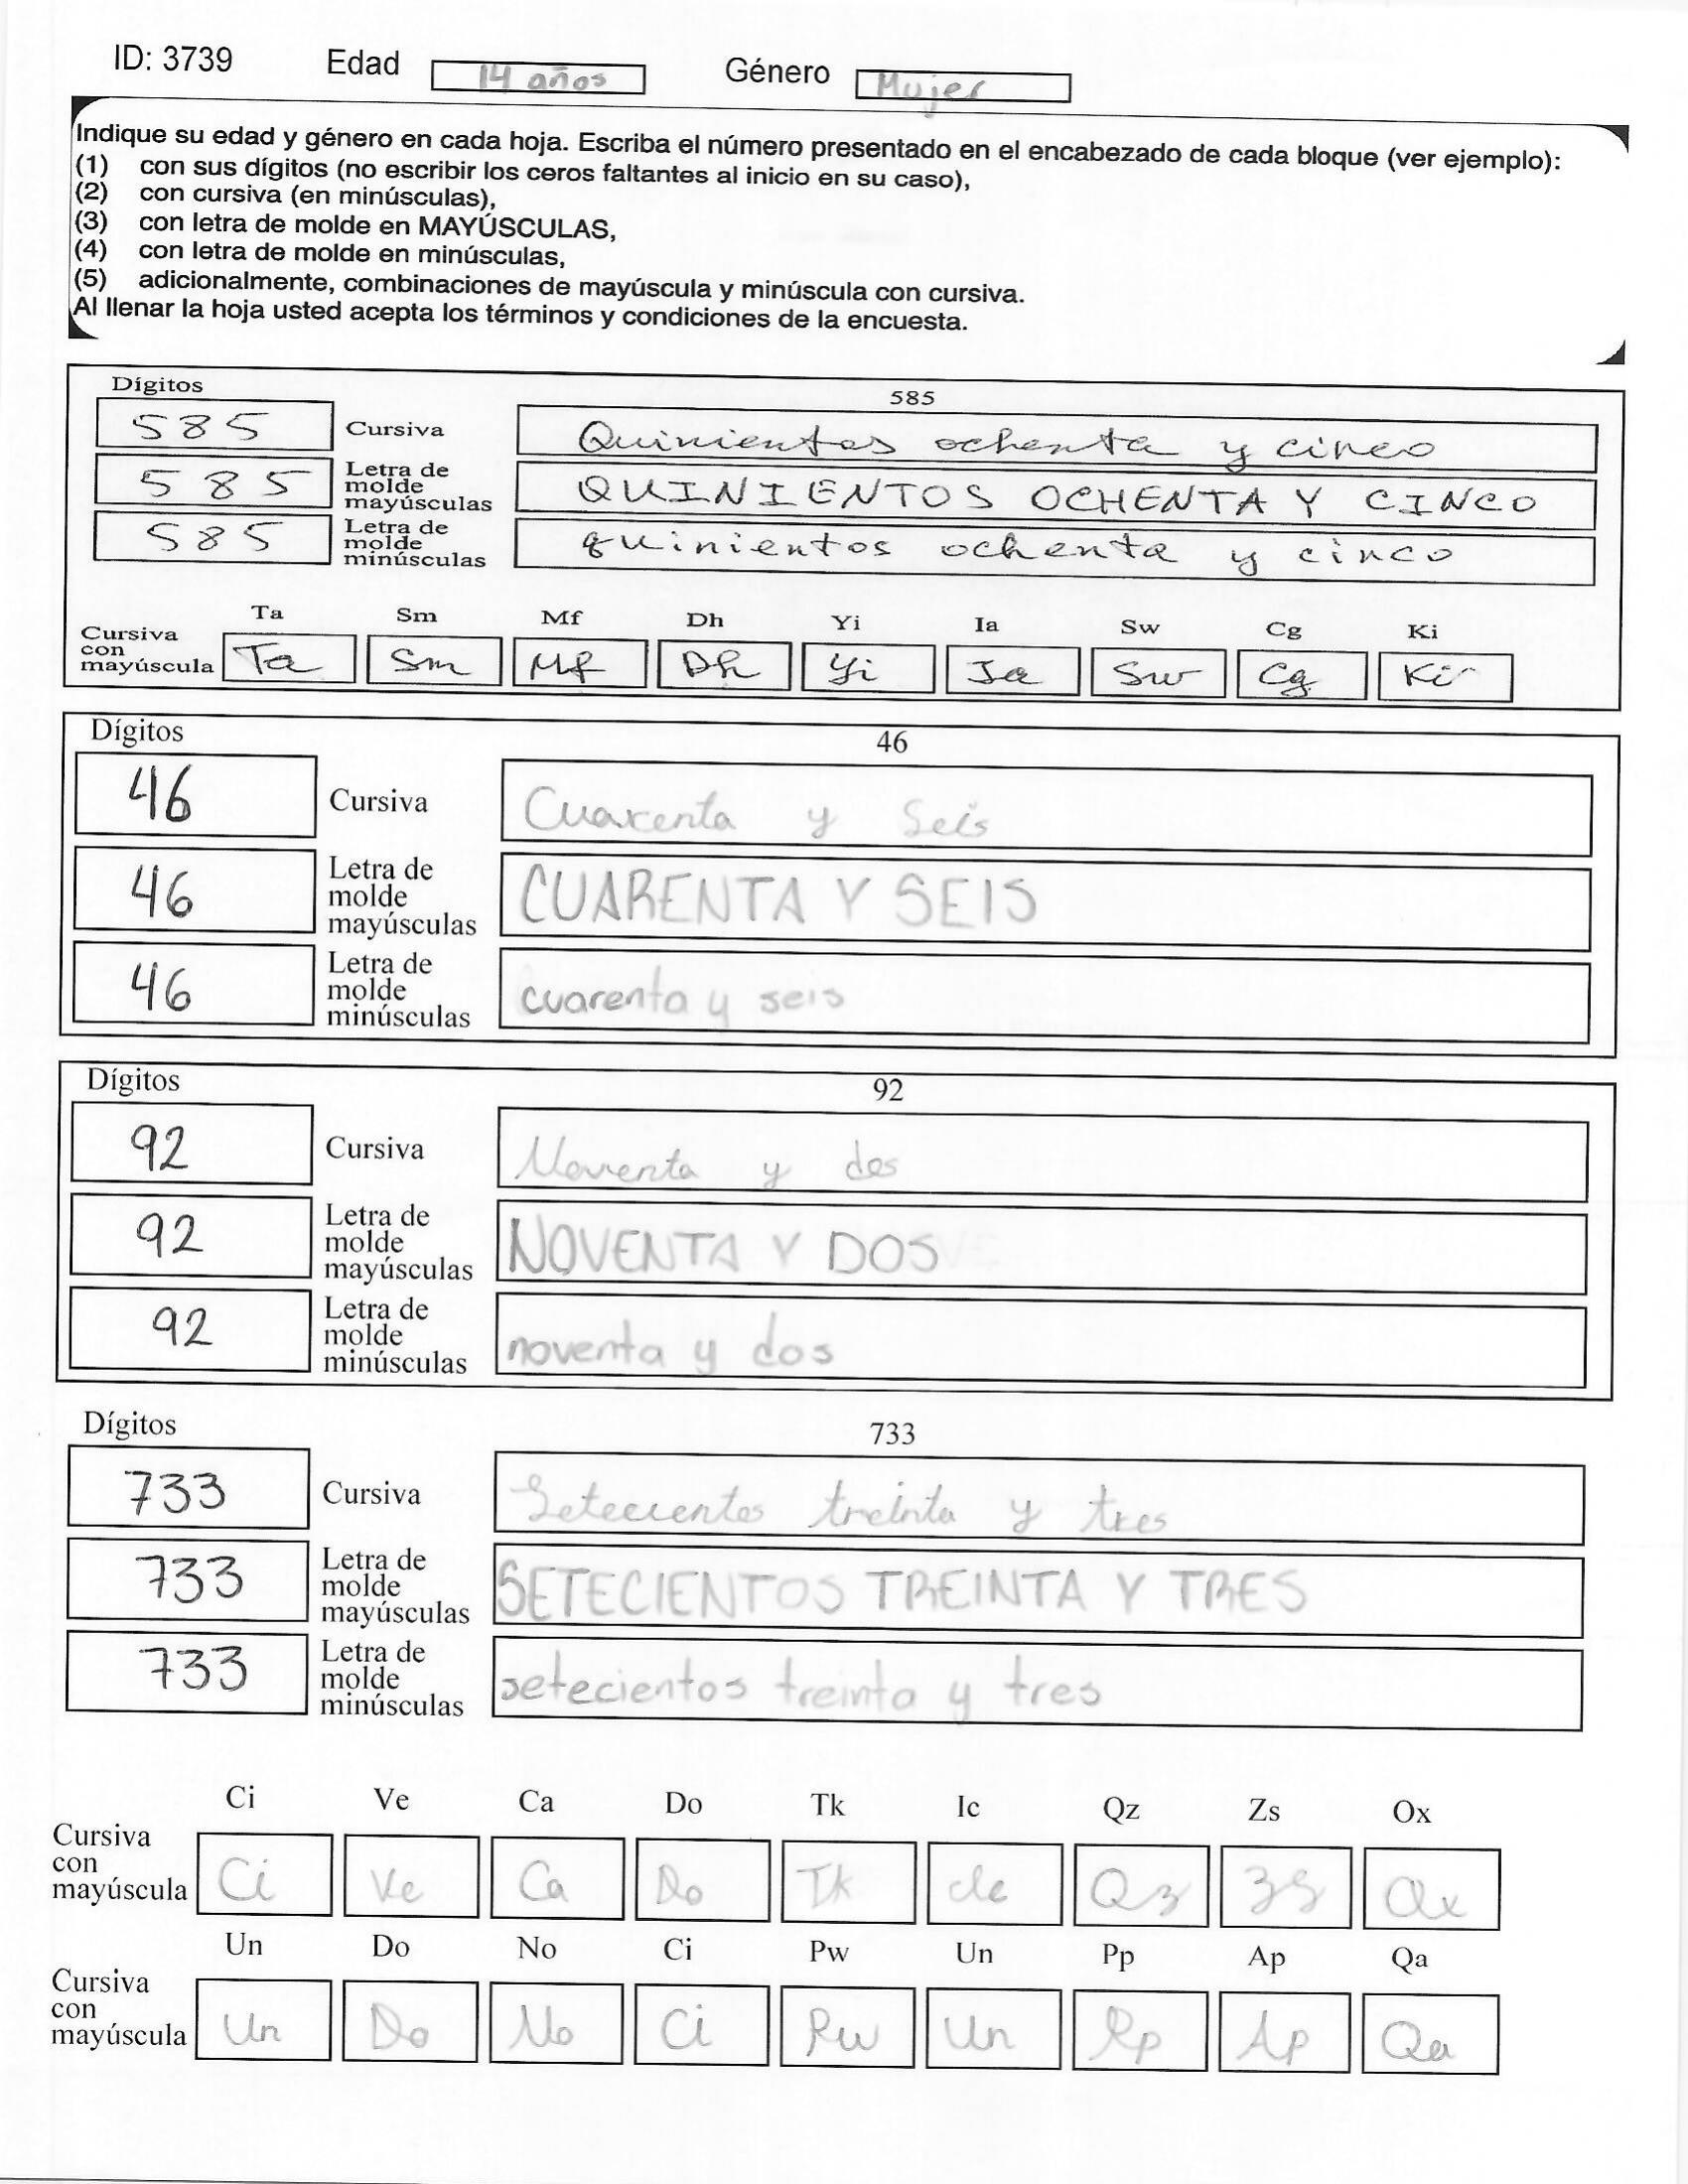 ID: 3739 Edad 14 años Género Mujer
Indique su edad y género en cada hoja. Escriba el número presentado en el encabezado de cada bloque (ver ejemplo):
(1) con sus dígitos (no escribir los ceros faltantes al inicio en su caso),
(2) con cursiva (en minúsculas),
(3) con letra de molde en MAYÚSCULAS,
(4) con letra de molde en minúsculas,
(5) adicionalmente, combinaciones de mayúscula y minúscula con cursiva.
Al llenar la hoja usted acepta los términos y condiciones de la encuesta.
Dígitos 585
585 Cursiva Quinientos ochenta y cinco
585 Letra de molde mayúsculas QUINIENTOS OCHENTA Y CINCO
585 Letra de molde minúsculas quinientos ochenta y cinco
Ta Sm Mf Dh Yi Ia Sw Cg Ki
Cursiva con mayúscula Ta Sm Mf Dh Yi Ia Sw Cg Ki
Dígitos 46
46 Cursiva Cuarenta y Seis
46 Letra de molde mayúsculas CUARENTA Y SEIS
46 Letra de molde minúsculas cuarenta y seis
Dígitos 92
92 Cursiva Noventa y dos
92 Letra de molde mayúsculas NOVENTA Y DOS
92 Letra de molde minúsculas noventa y dos
Dígitos 733
733 Cursiva Setecientos treinta y tres
733 Letra de molde mayúsculas SETECIENTOS TREINTA Y TRES
733 Letra de molde minúsculas setecientos treinta y tres
Ci Ve Ca Do Tk Ic Qz Zs Ox
Cursiva con mayúscula Ci Ve Ca Do Tk Ic Qz Zs Ox
Un Do No Ci Pw Un Pp Ap Qa
Cursiva con mayúscula Un Do No Ci Pw Un Pp Ap Qa